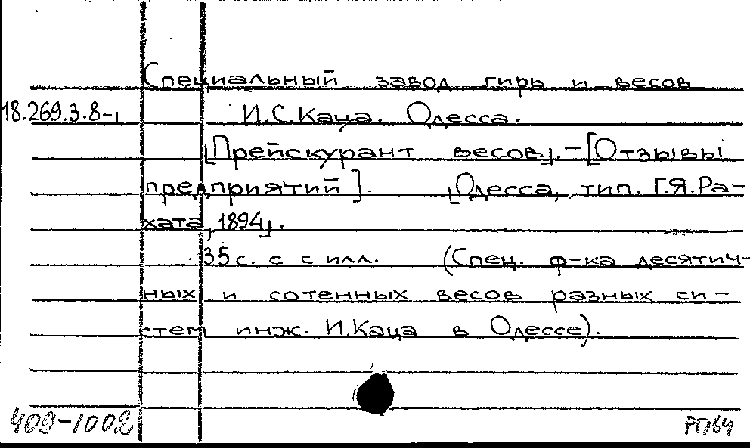 Специальный завод гирь и весов
18.269.3.8-1
И.С.Каца. Одесса.
[Прейскурант весов]. – [Отзывы
предприятий]. [Одесса, тип. Г.Я.Ра-
хата, 1894].
35 с. с илл. (Спец. ф-ка десятич-
ных и сотенных весов разных си-
стем инж. И.Каца в Одессе).
409-1002
РП/64